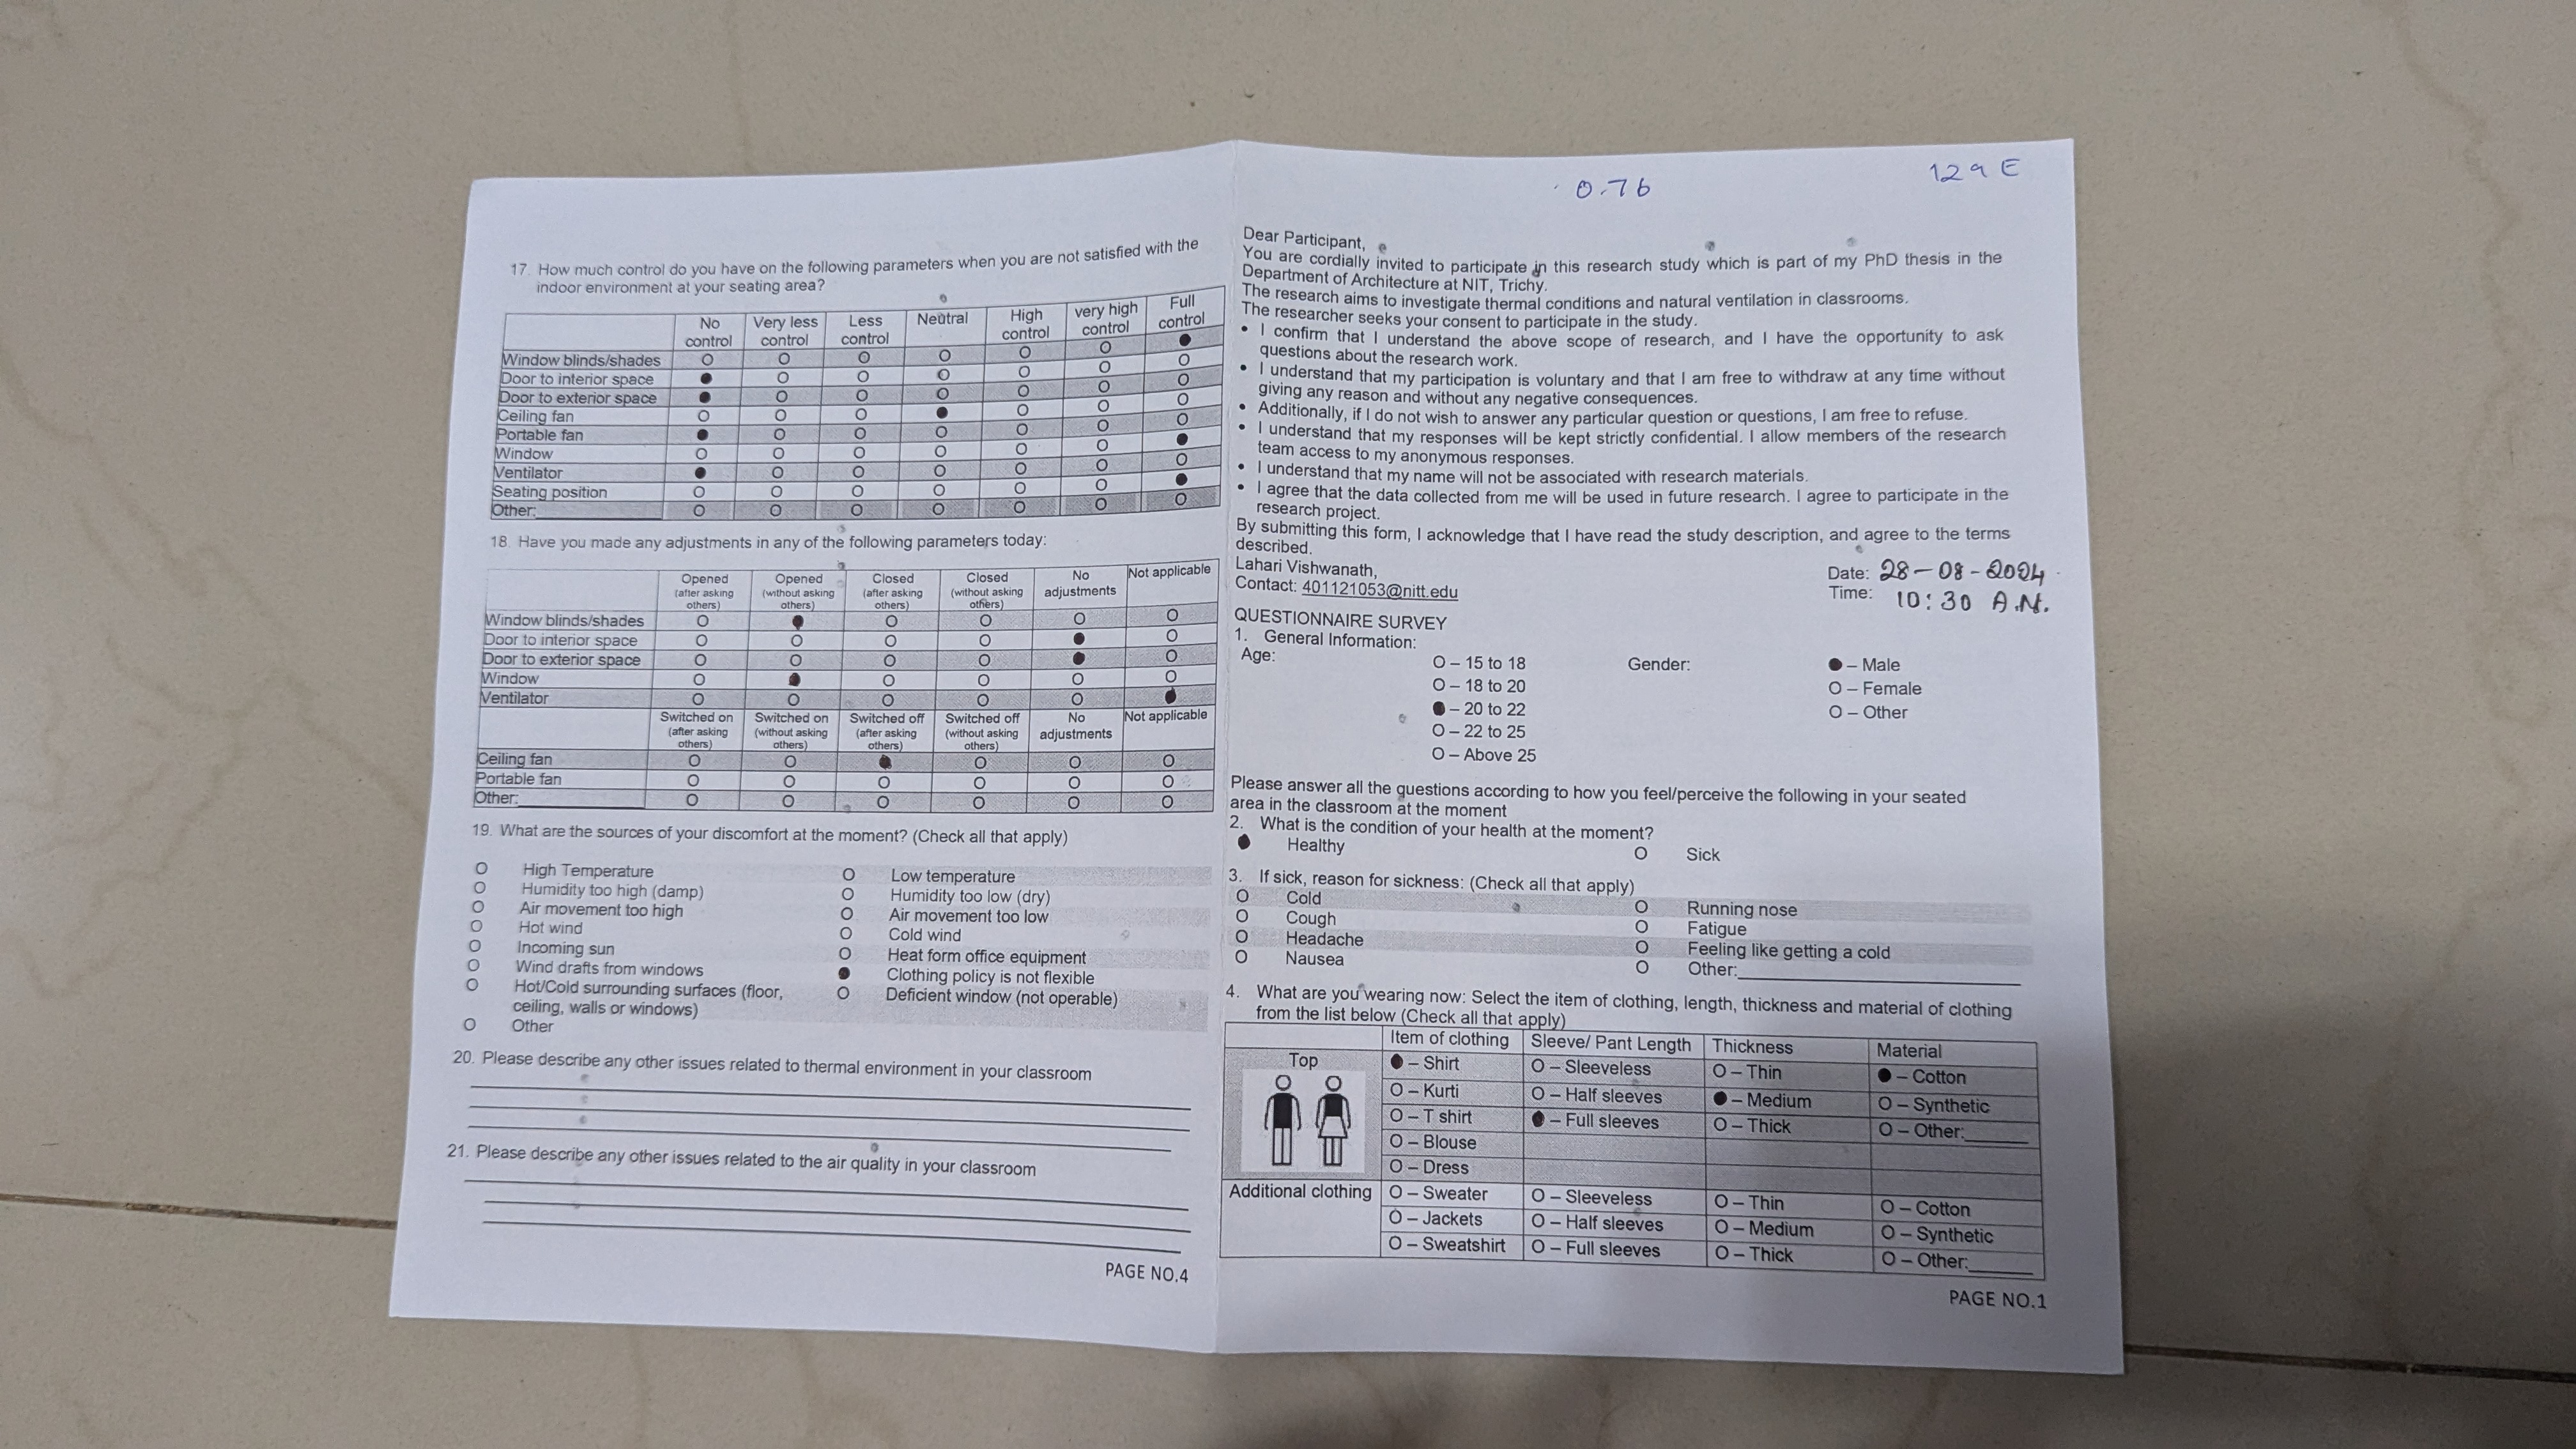 17. How much control do you have on the following parameters when you are not satisfied with the
indoor environment at your seating area?
No control Very less control Less control Neutral High control very high control Full control
Window blinds/shades O O O O O O ●
Door to interior space ● O O O O O O
Door to exterior space ● O O O O O O
Ceiling fan O O O ● O O O
Portable fan ● O O O O O O
Window O O O O O O ●
Ventilator ● O O O O O O
Seating position O O O O O O ●
Other:_________ O O O O O O O
18. Have you made any adjustments in any of the following parameters today:
Opened (after asking others) Opened (without asking others) Closed (after asking others) Closed (without asking others) No adjustments Not applicable
Window blinds/shades O ● O O O O
Door to interior space O O O O ● O
Door to exterior space O O O O ● O
Window O ● O O O O
Ventilator O O O O O ●
Switched on (after asking others) Switched on (without asking others) Switched off (after asking others) Switched off (without asking others) No adjustments Not applicable
Ceiling fan O O ● O O O
Portable fan O O O O O O
Other:_________ O O O O O O
19. What are the sources of your discomfort at the moment? (Check all that apply)
O High Temperature O Low temperature
O Humidity too high (damp) O Humidity too low (dry)
O Air movement too high O Air movement too low
O Hot wind O Cold wind
O Incoming sun O Heat form office equipment
O Wind drafts from windows ● Clothing policy is not flexible
O Hot/Cold surrounding surfaces (floor, O Deficient window (not operable)
ceiling, walls or windows)
O Other
20. Please describe any other issues related to thermal environment in your classroom
21. Please describe any other issues related to the air quality in your classroom
PAGE NO.4
0.76
129 E
Dear Participant,
You are cordially invited to participate in this research study which is part of my PhD thesis in the
Department of Architecture at NIT, Trichy.
The research aims to investigate thermal conditions and natural ventilation in classrooms.
The researcher seeks your consent to participate in the study.
• I confirm that I understand the above scope of research, and I have the opportunity to ask
questions about the research work.
• I understand that my participation is voluntary and that I am free to withdraw at any time without
giving any reason and without any negative consequences.
• Additionally, if I do not wish to answer any particular question or questions, I am free to refuse.
• I understand that my responses will be kept strictly confidential. I allow members of the research
team access to my anonymous responses.
• I understand that my name will not be associated with research materials.
• I agree that the data collected from me will be used in future research. I agree to participate in the
research project.
By submitting this form, I acknowledge that I have read the study description, and agree to the terms
described.
Lahari Vishwanath,
Contact: 401121053@nitt.edu
Date: 28-08-2024
Time: 10:30 A.M.
QUESTIONNAIRE SURVEY
1. General Information:
Age: O – 15 to 18 Gender: ● – Male
O – 18 to 20 O – Female
● – 20 to 22 O – Other
O – 22 to 25
O – Above 25
Please answer all the questions according to how you feel/perceive the following in your seated
area in the classroom at the moment
2. What is the condition of your health at the moment?
● Healthy O Sick
3. If sick, reason for sickness: (Check all that apply)
O Cold O Running nose
O Cough O Fatigue
O Headache O Feeling like getting a cold
O Nausea O Other:_________
4. What are you wearing now: Select the item of clothing, length, thickness and material of clothing
from the list below (Check all that apply)
Item of clothing Sleeve/ Pant Length Thickness Material
Top ● – Shirt O – Sleeveless O – Thin ● – Cotton
O – Kurti O – Half sleeves ● – Medium O – Synthetic
O – T shirt ● – Full sleeves O – Thick O – Other:______
O – Blouse
O – Dress
Additional clothing O – Sweater O – Sleeveless O – Thin O – Cotton
O – Jackets O – Half sleeves O – Medium O – Synthetic
O – Sweatshirt O – Full sleeves O – Thick O – Other:______
PAGE NO.1